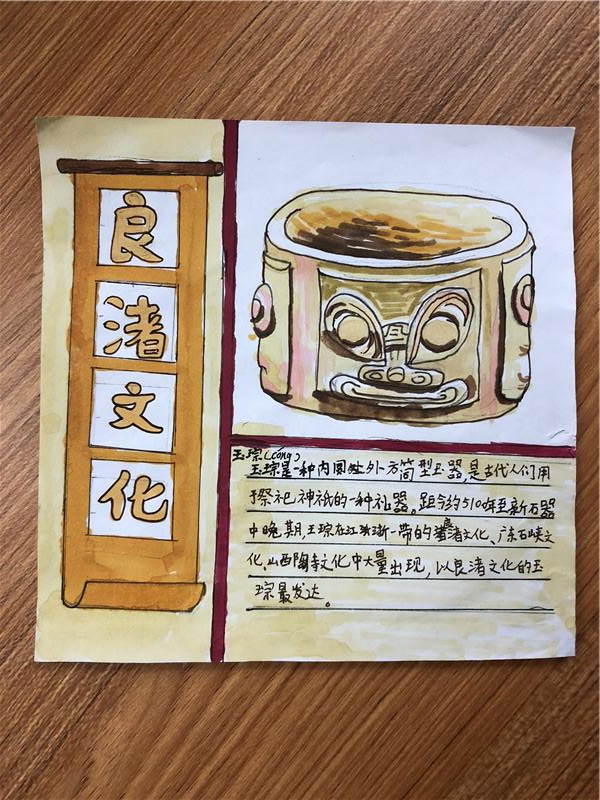 良
渚
文
化
玉琮(cóng)
玉琮是一种内圆外方筒型玉器,是古代人们用
于祭祀神祇的一种礼器。距今约5100年至新石器
中晚期,玉琮在江浙一带的良渚文化、广东石峡文
化、山西陶寺文化中大量出现,以良渚文化的玉
琮最发达。